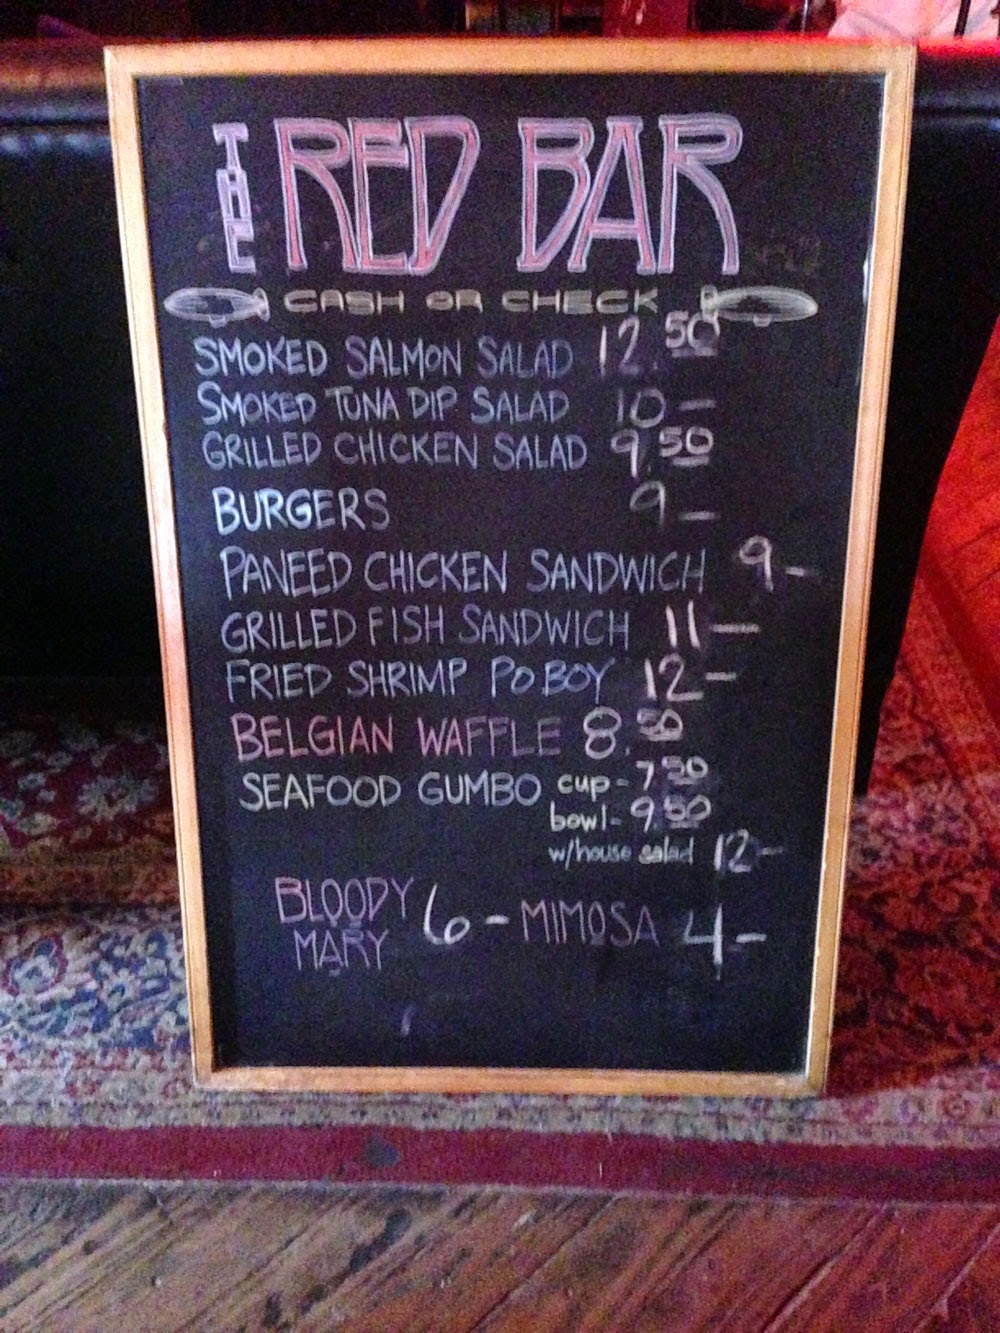 THE RED BAR
CASH OR CHECK
SMOKED SALMON SALAD 12.50
SMOKED TUNA DIP SALAD 10 —
GRILLED CHICKEN SALAD 9.50
BURGERS 9 —
PANEED CHICKEN SANDWICH 9 -
GRILLED FISH SANDWICH 11 —
FRIED SHRIMP PO BOY 12 —
BELGIAN WAFFLE 8.50
SEAFOOD GUMBO cup - 7.50
bowl - 9.50
w/house salad 12 —
BLOODY MARY 6 - MIMOSA 4 -